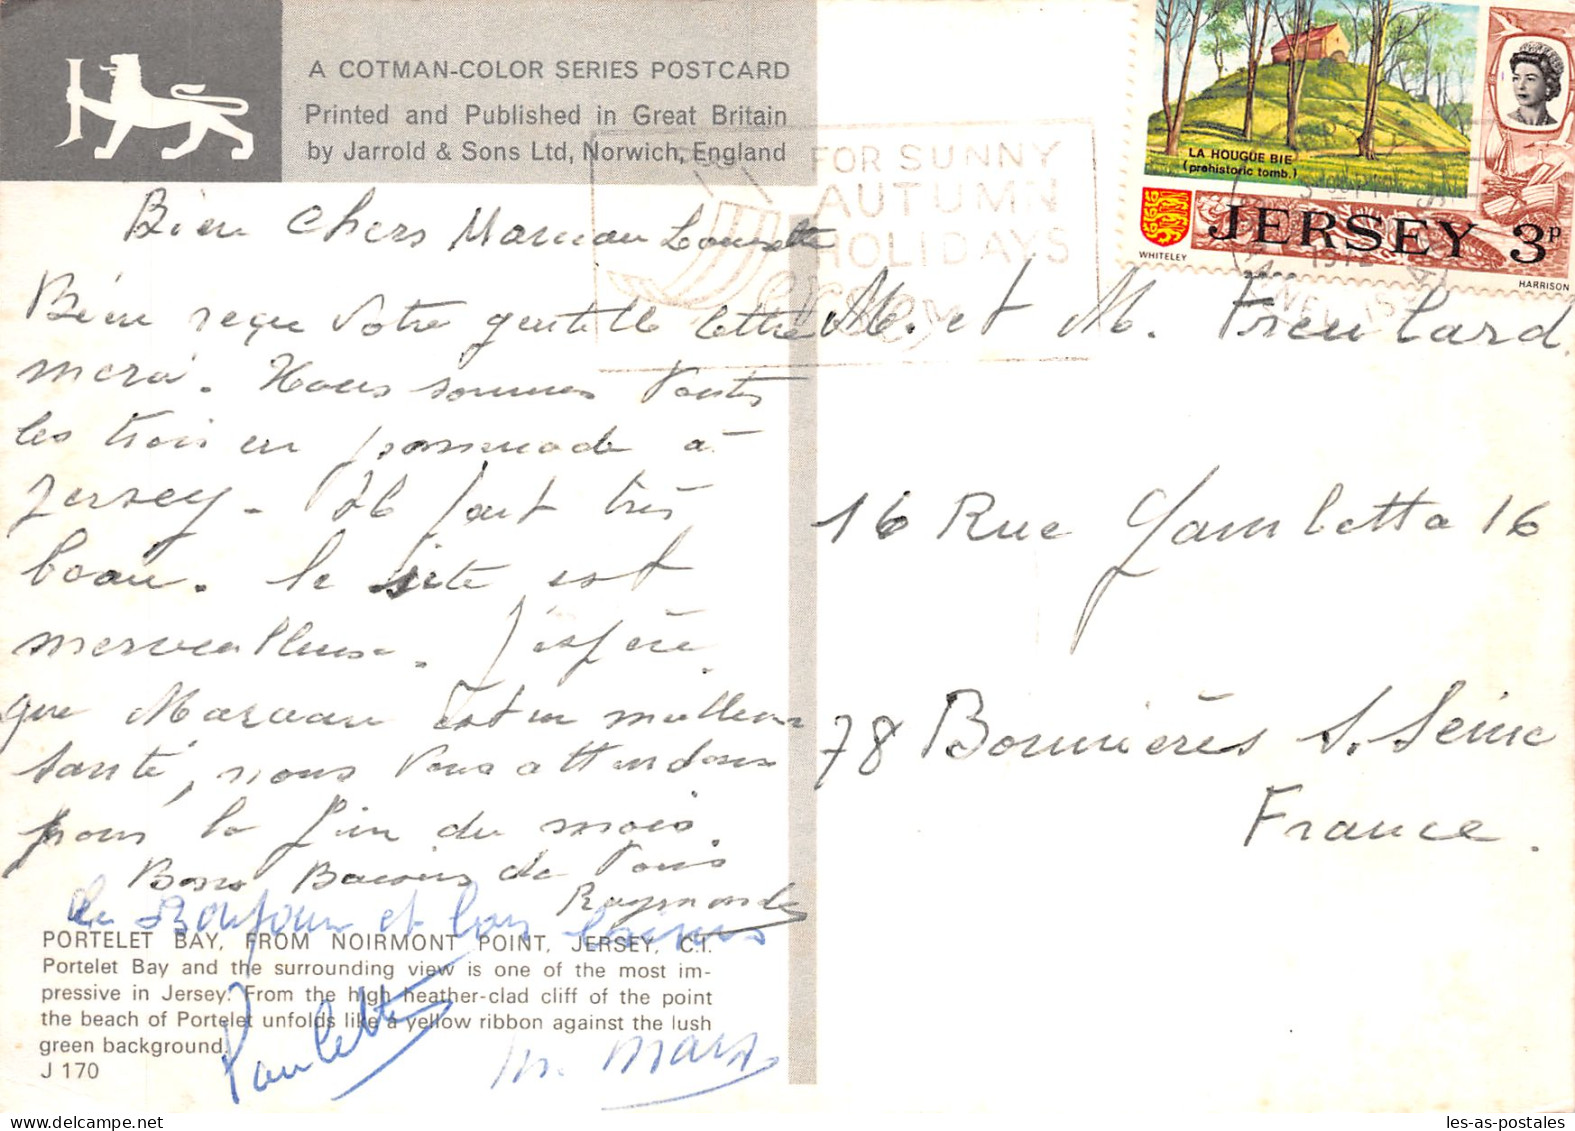 A COTMAN-COLOR SERIES POSTCARD
Printed and Published in Great Britain
by Jarrold & Sons Ltd, Norwich, England
FOR SUNNY
AUTUMN
HOLIDAYS
LA HOUGUE BIE
(prehistoric tomb.)
JERSEY 3p
WHITELEY
HARRISON
Bien chers Marceau Lousette
Bien reçu votre gentille lettre
merci. Nous sommes toutes
les trois en promenade à
Jersey - Il fait très
beau. le site est
merveilleuse. J'espère
que Marceau est en meilleure
santé, nous vous attendons
pour la fin du mois.
Bons Baisers de tous
Raymonde
Le Bonjour et bons baisers
Paulette
M. et M. Freulard
16 Rue Gambetta 16
78 Bonnières s. Seine
France.
PORTELET BAY, FROM NOIRMONT POINT, JERSEY, C.I.
Portelet Bay and the surrounding view is one of the most im-
pressive in Jersey. From the high heather-clad cliff of the point
the beach of Portelet unfolds like a yellow ribbon against the lush
green background.
J 170
les-as-postales